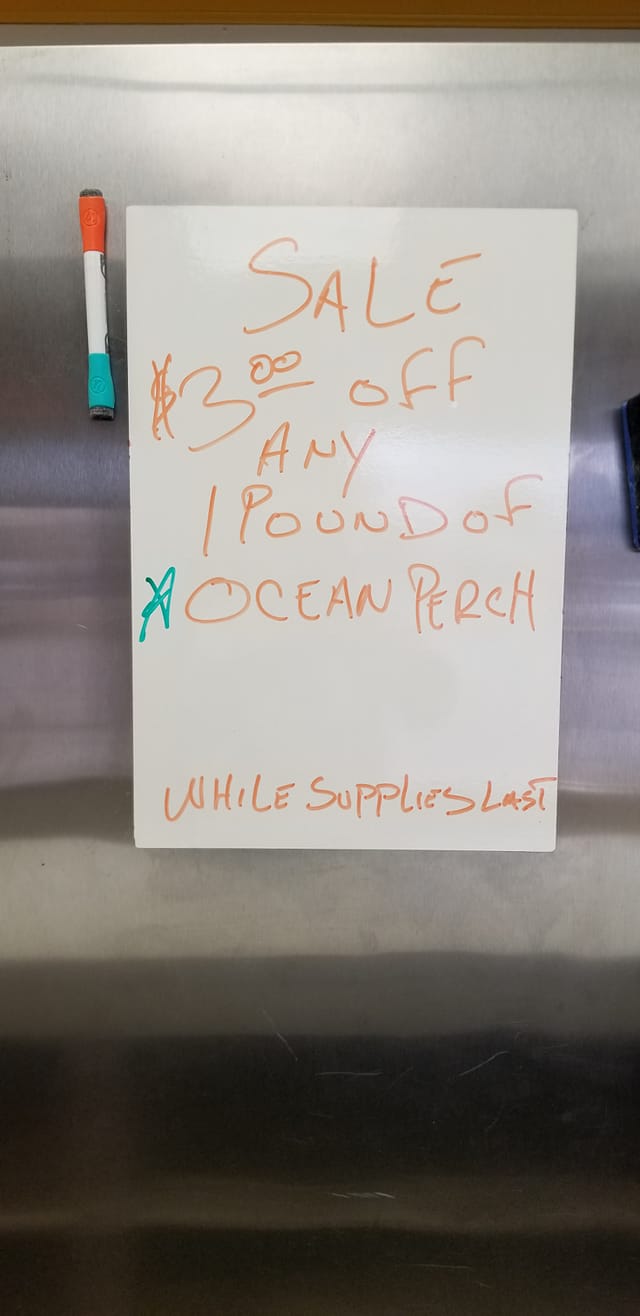 SALE
$3.00 OFF
ANY
1 POUND OF
OCEAN PERCH
WHILE SUPPLIES LAST